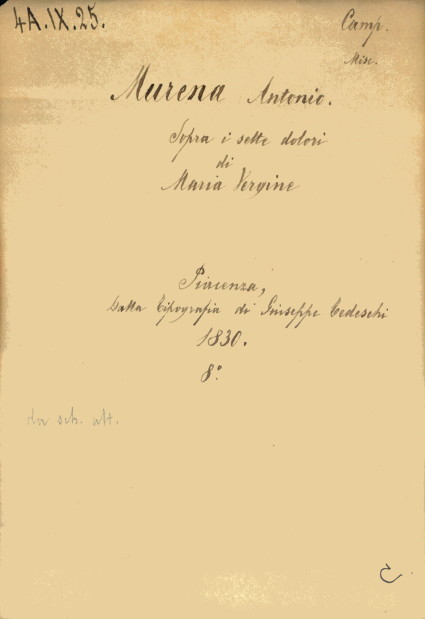 4A.IX.25.
Camp.
Misc.
Murena Antonio.
Sopra i sette dolori
di
Maria Vergine
Piacenza,
Dalla Tipografia di Giuseppe Tedeschi
1830.
8°.